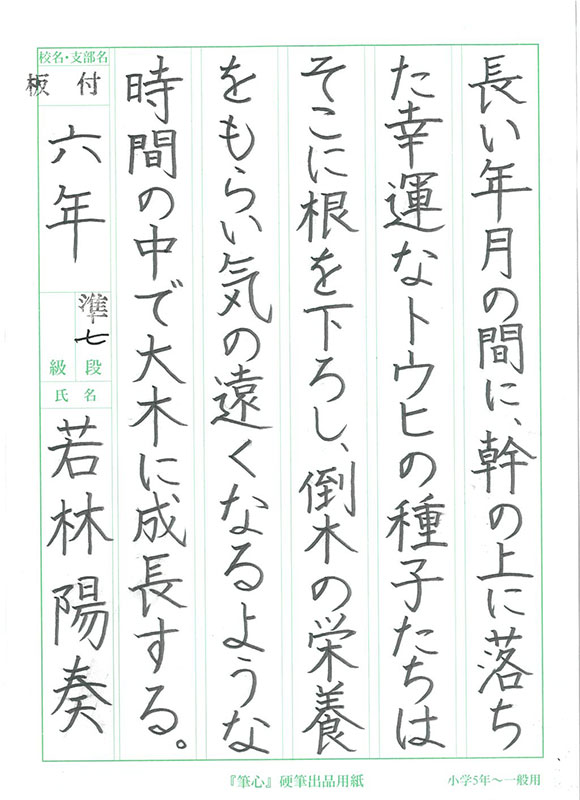 長い年月の間に、幹の上に落ち
た幸運なトウヒの種子たちは
そこに根を下ろし、倒木の栄養
をもらい気の遠くなるような
時間の中で大木に成長する。
校名・支部名
板付
六年
準七
段
級
氏名
若林陽奏
『筆心』硬筆出品用紙
小学5年～一般用